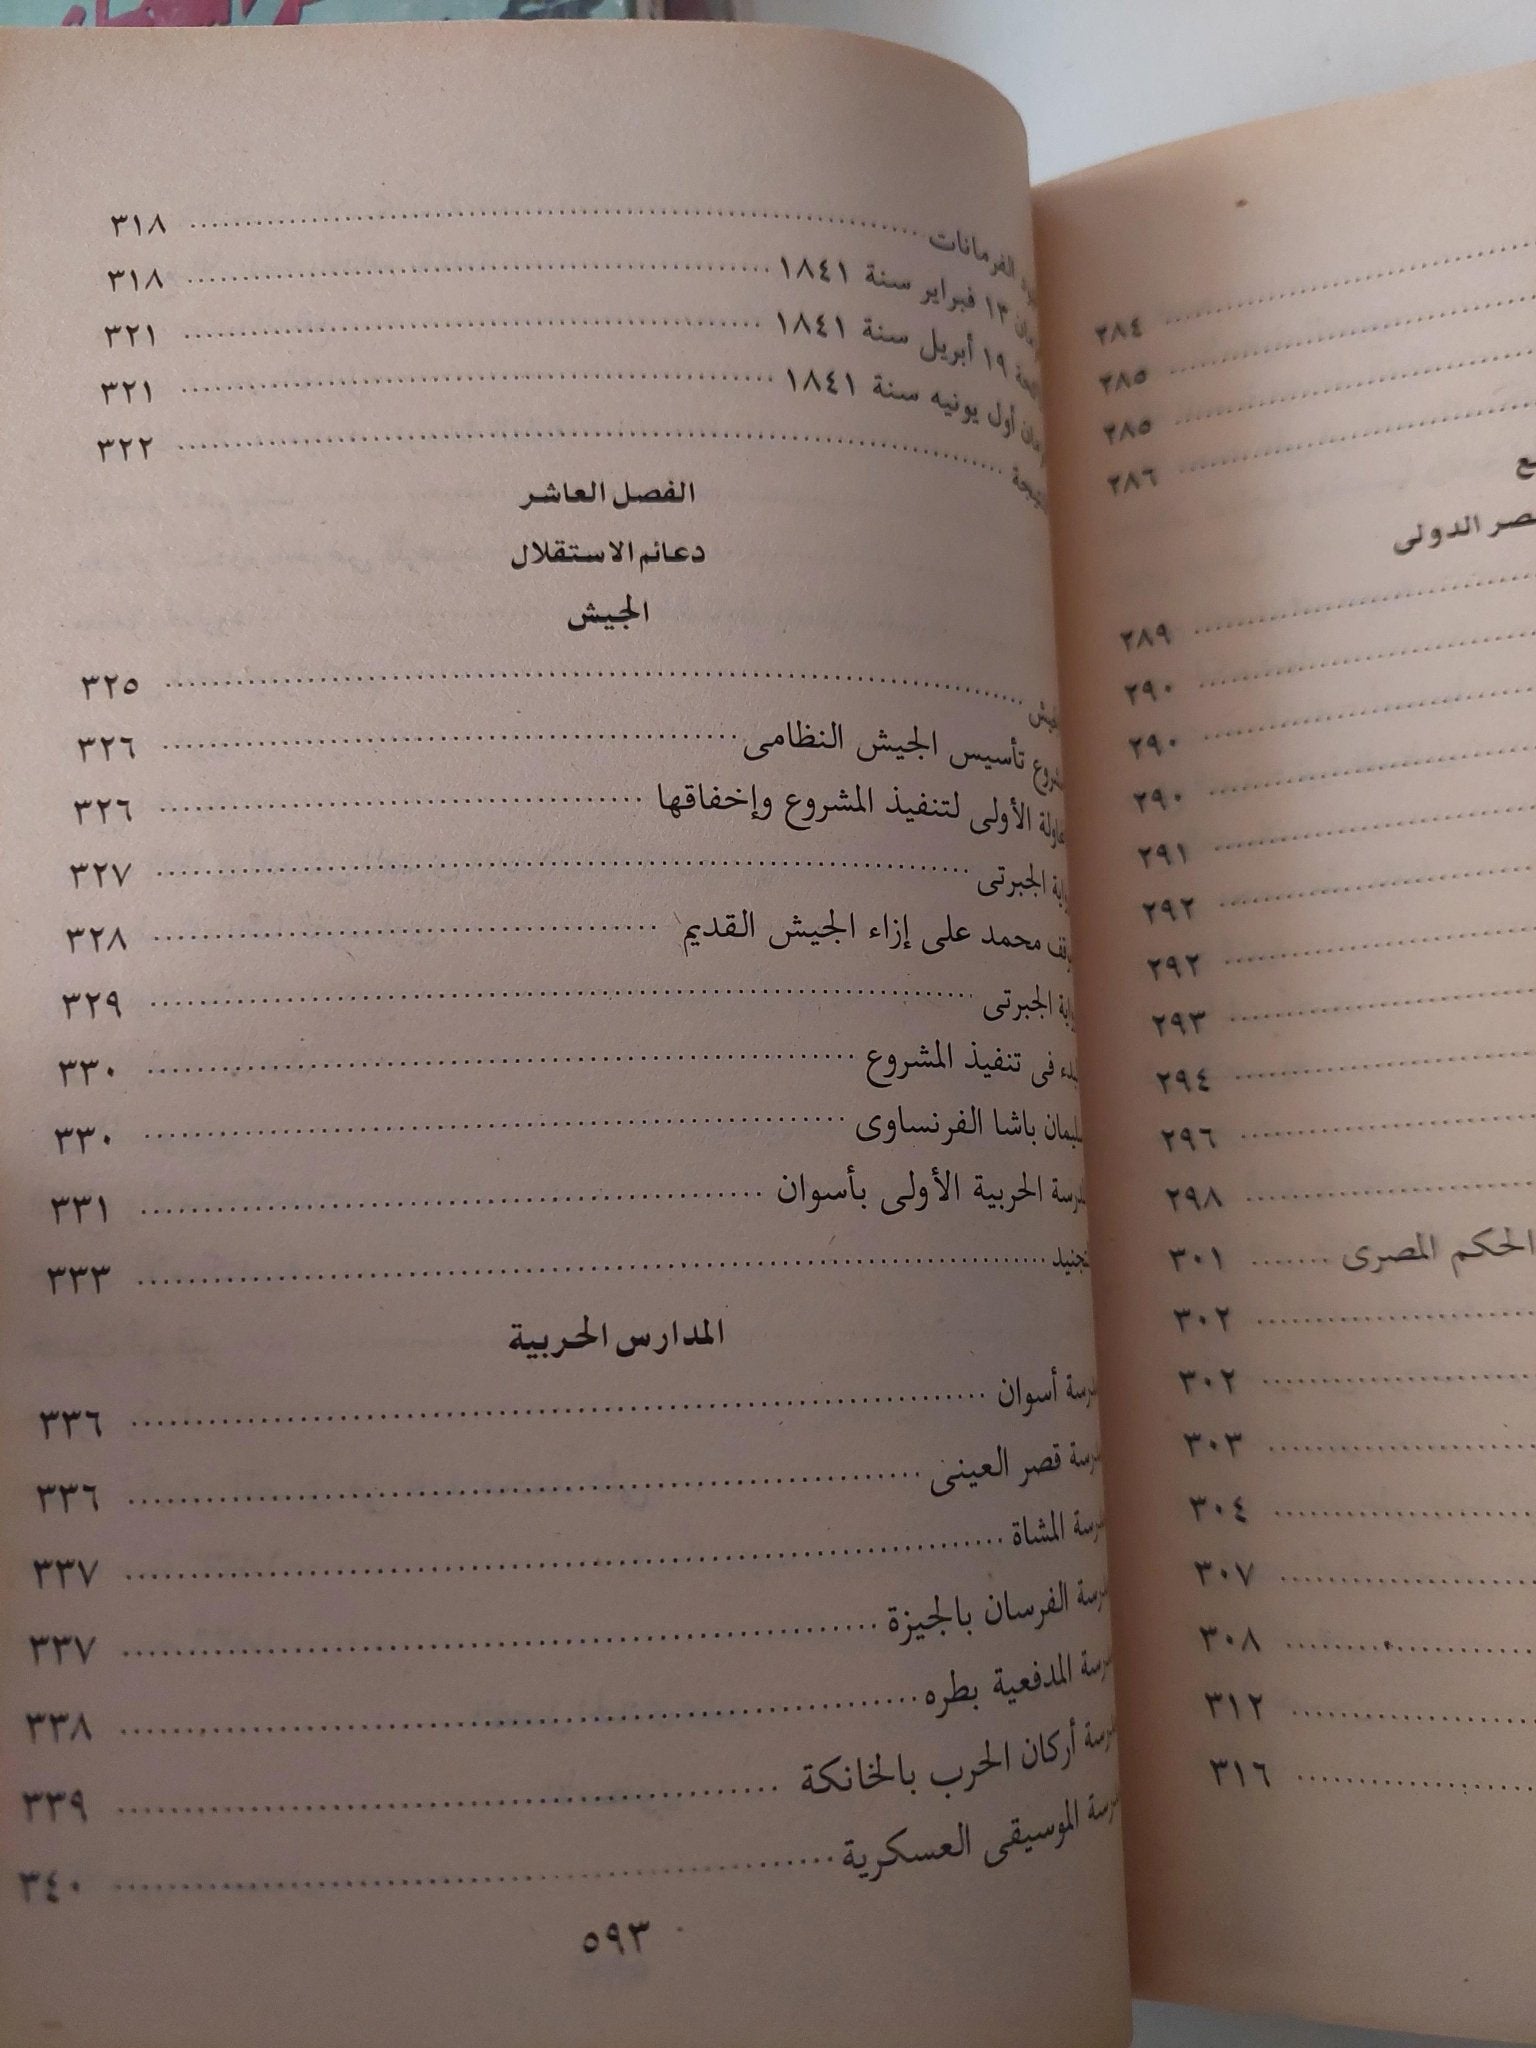 الفرمانات ٣١٨
١٣ فبراير سنة ١٨٤١ ٣١٨
١٩ أبريل سنة ١٨٤١ ٣٢١
أول يونيه سنة ١٨٤١ ٣٢١
٣٢٢
الفصل العاشر
دعائم الاستقلال
الجيش
٣٢٥
تأسيس الجيش النظامى ٣٢٦
الأولى لتنفيذ المشروع وإخفاقها ٣٢٦
الجبرتى ٣٢٧
محمد على إزاء الجيش القديم ٣٢٨
الجبرتى ٣٢٩
فى تنفيذ المشروع ٣٣٠
باشا الفرنساوى ٣٣٠
الحربية الأولى بأسوان ٣٣١
٣٣٣
المدارس الحربية
أسوان ٣٣٦
قصر العينى ٣٣٦
المشاة ٣٣٧
الفرسان بالجيزة ٣٣٧
المدفعية بطره ٣٣٨
أركان الحرب بالخانكة ٣٣٩
الموسيقى العسكرية ٣٤٠
٥٩٣
٢٨٤
٢٨٥
٢٨٥
٢٨٦
الدولى
٢٨٩
٢٩٠
٢٩٠
٢٩٠
٢٩١
٢٩٢
٢٩٢
٢٩٣
٢٩٤
٢٩٦
٢٩٨
الحكم المصرى ٣٠١
٣٠٢
٣٠٢
٣٠٣
٣٠٤
٣٠٧
٣٠٨
٣١٢
٣١٦